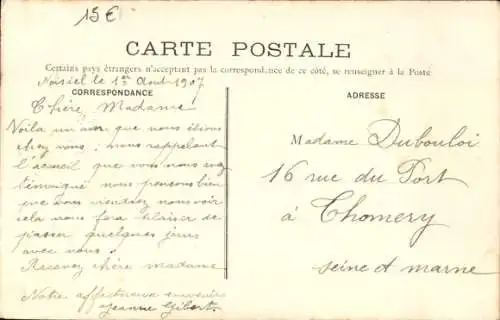 15€
CARTE POSTALE
Certains pays étrangers n'acceptant pas la correspondance de ce côté, se renseigner à la Poste
Noisiel le 1er Aout 1907
CORRESPONDANCE
Chère Madame
Voila un an que nous étions
chez vous : nous rappelant
l'accueil que vous nous avez
témoigné nous pensons bien
que vous viendrez nous voir
cela nous fera plaisir de
passer quelques jours
avec vous.
Recevez chère madame
Notre affectueux souvenir
Jeanne Gibert
ADRESSE
Madame Dubouloi
16 rue du Port
à Thomery
Seine et marne